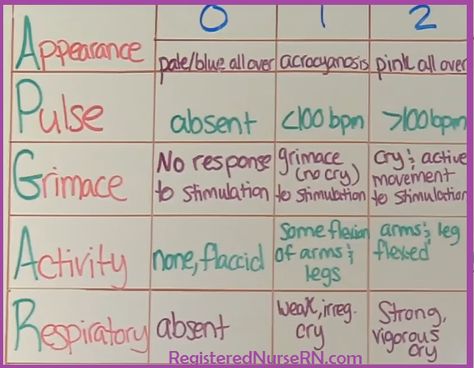 0 1 2
Appearance pale/blue all over acrocyanosis pink all over
Pulse absent <100 bpm >100 bpm
Grimace No response to stimulation grimace (no cry) to stimulation cry & active movement to stimulation
Activity none, flaccid Some flexion of arms & legs arms & leg flexed
Respiratory absent weak, irreg. cry Strong, vigorous cry
RegisteredNurseRN.com